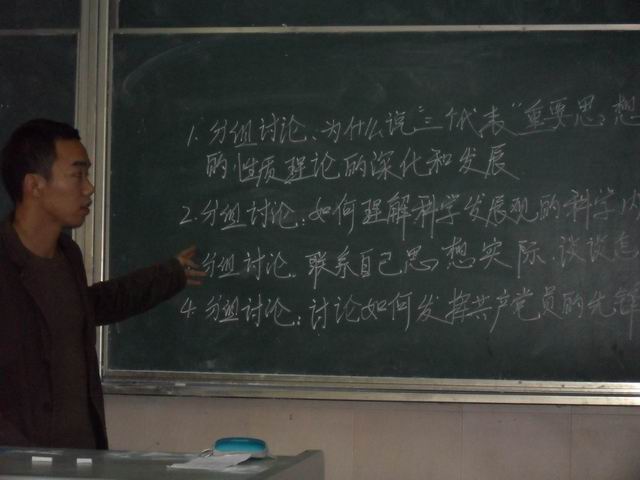 1. 分组讨论、为什么说"三个代表"重要思想
的性质理论的深化和发展
2. 分组讨论:如何理解科学发展观的科学
分组讨论. 联系自己思想实际.谈谈怎
4. 分组讨论:讨论如何发挥共产党员的先